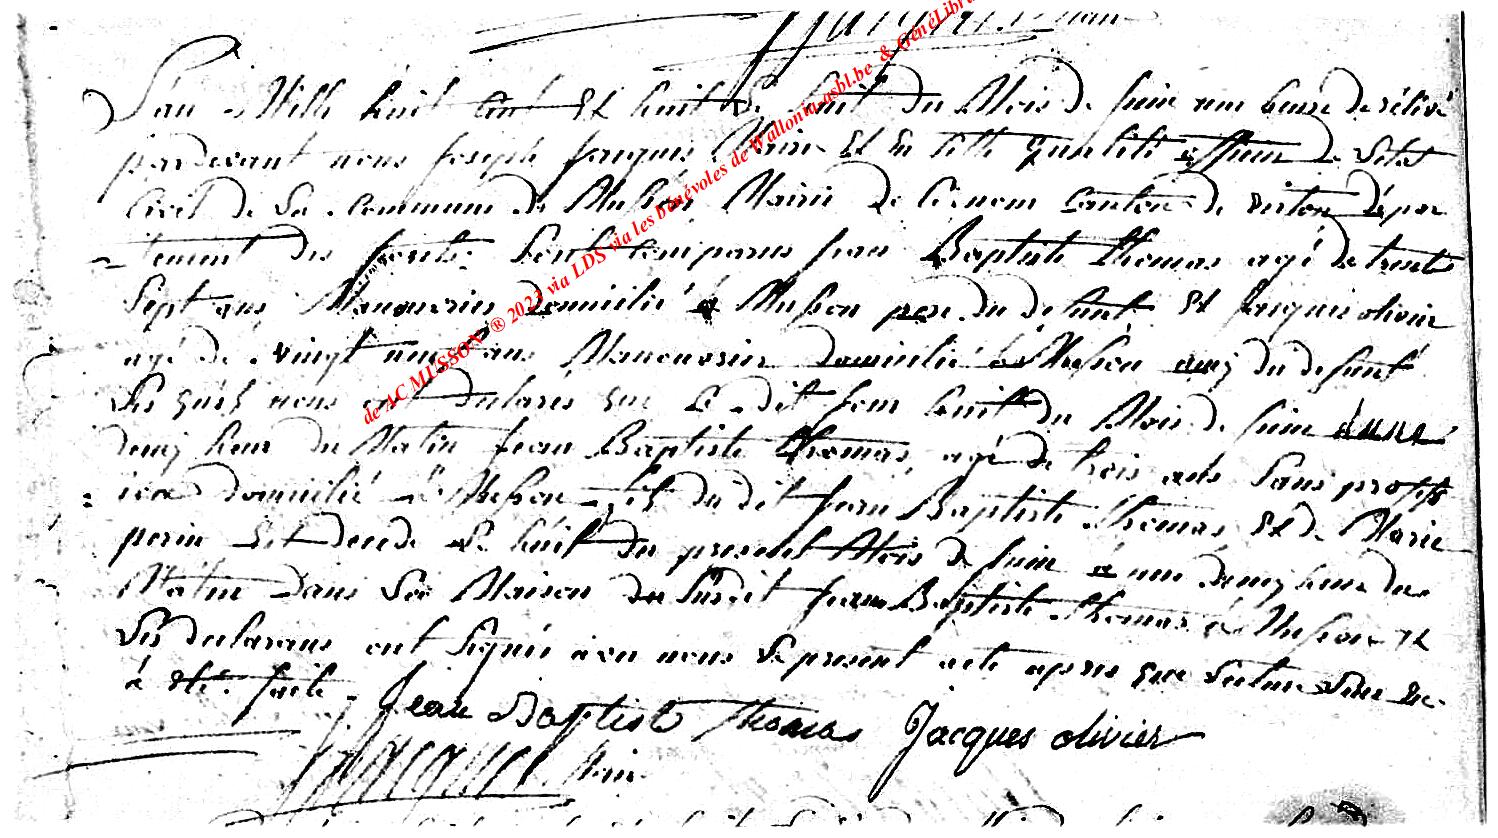 Jacques maire
L'an Mille huit cent et huit le huit du Mois de Juin une heure de rélivé
pardevant nous Joseph Jacques Maire et en telle qualité officier de l'etat
Civil de la commune de Musson, Mairie de ce nom Canton de virton dépar
tement des forêts sont comparus Jean Baptiste thomas agé de trente
sept ans Manouvrier domicilié à Musson pere du defunt et Jacque olivier
agé de vingt neuf ans Manouvrier domicilié à Musson amÿ du defunt
les quels nous ont declarés que le dit Jour huit du Mois de Juin d'une
demÿ heur du Matin Jean Baptiste thomas, agé de trois ans sans profess
ion domicilié à Musson fils du dit Jean Baptiste thomas et de Marie
perin est decede le huit du present Mois de Juin à une demÿ heure du
Matin dans la Maison du susdit Jean Baptiste thomas à Musson et
les declarans ont signé avec nous le present acte apres que lecture leur en
à eté faite
Jean Baptiste thomas Jacques olivier
Jacques Maire
de AC MUSSON ® 2023 via LDS via les bénévoles de Wallonia-asbl.be & GénéLibra